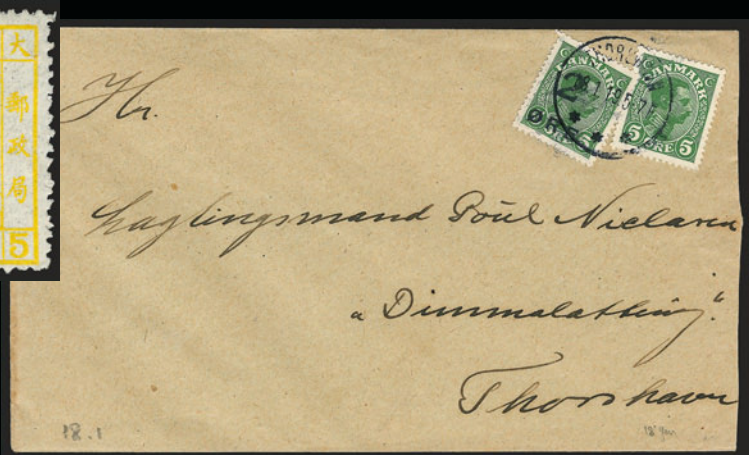 大
郵
政
局
5
DANMARK
2
ØRE
5
DANMARK
5 ØRE 5
THORSHAVN
Hr.
Lagtingsmand Poul Nielsen
"Dimmalætting".
Thorshavn
18.1